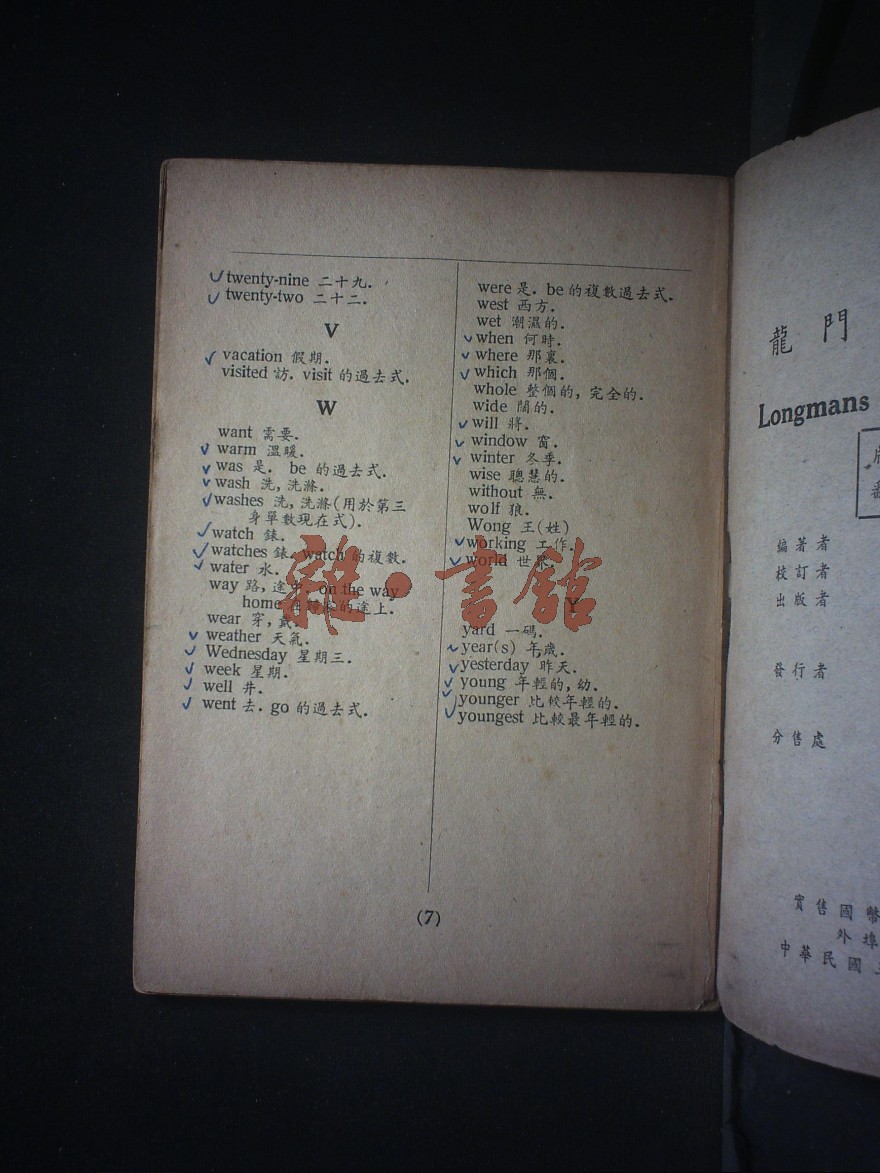 twenty-nine 二十九.
twenty-two 二十二.
V
vacation 假期.
visited 訪. visit 的過去式.
W
want 需要.
warm 溫暖.
was 是. be 的過去式.
wash 洗, 洗滌.
washes 洗, 洗滌(用於第三
身單數現在式).
watch 錶.
watches 錶. watch 的複數.
water 水.
way 路, 途中. on the way
home 在歸家的途上.
wear 穿, 戴.
weather 天氣.
Wednesday 星期三.
week 星期.
well 井.
went 去. go 的過去式.
were 是. be 的複數過去式.
west 西方.
wet 潮濕的.
when 何時.
where 那裏.
which 那個.
whole 整個的, 完全的.
wide 闊的.
will 將.
window 窗.
winter 冬季.
wise 聰慧的.
without 無.
wolf 狼.
Wong 王(姓)
working 工作.
world 世界.
Y
yard 一碼.
year(s) 年, 歲.
yesterday 昨天.
young 年輕的, 幼.
younger 比較年輕的.
youngest 比較最年輕的.
(7)
雜·書館
龍門
Longmans
編著者
校訂者
出版者
發行者
分售處
實售國幣
外埠
中華民國